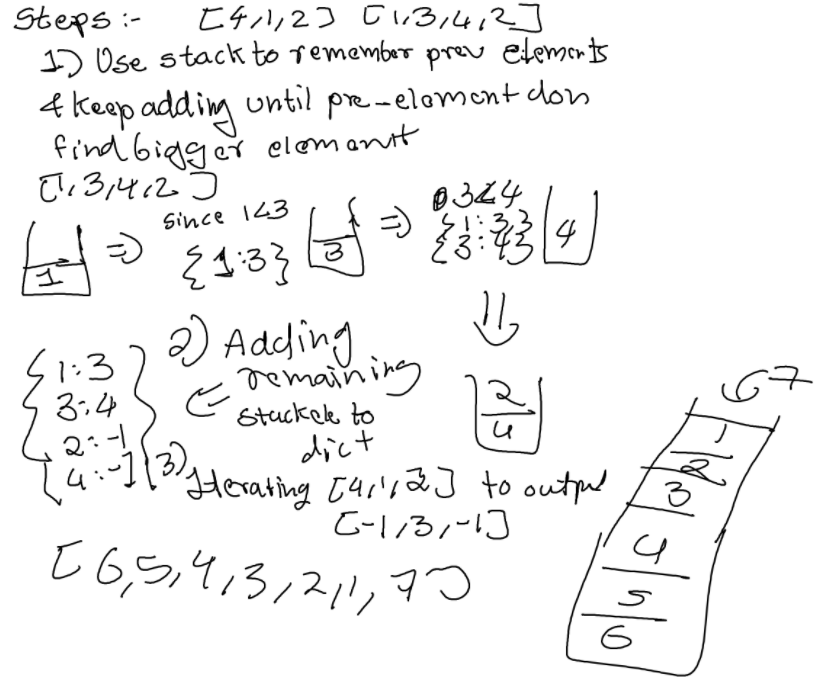 Steps :- [4,1,2] [1,3,4,2]
1) Use stack to remember prev elements
& keep adding until pre-element don
find bigger elemant
[1,3,4,2]
1 => since 1<3 {1:3} 3 => 3<4 {1:3} {3:4} 4
{1:3
3:4
2:-1
4:-1}
2) Adding
remaining
stackele to
dict
2
4
3) Iterating [4,1,2] to output
[-1,3,-1]
[6,5,4,3,2,1,7]
7
1
2
3
4
5
6